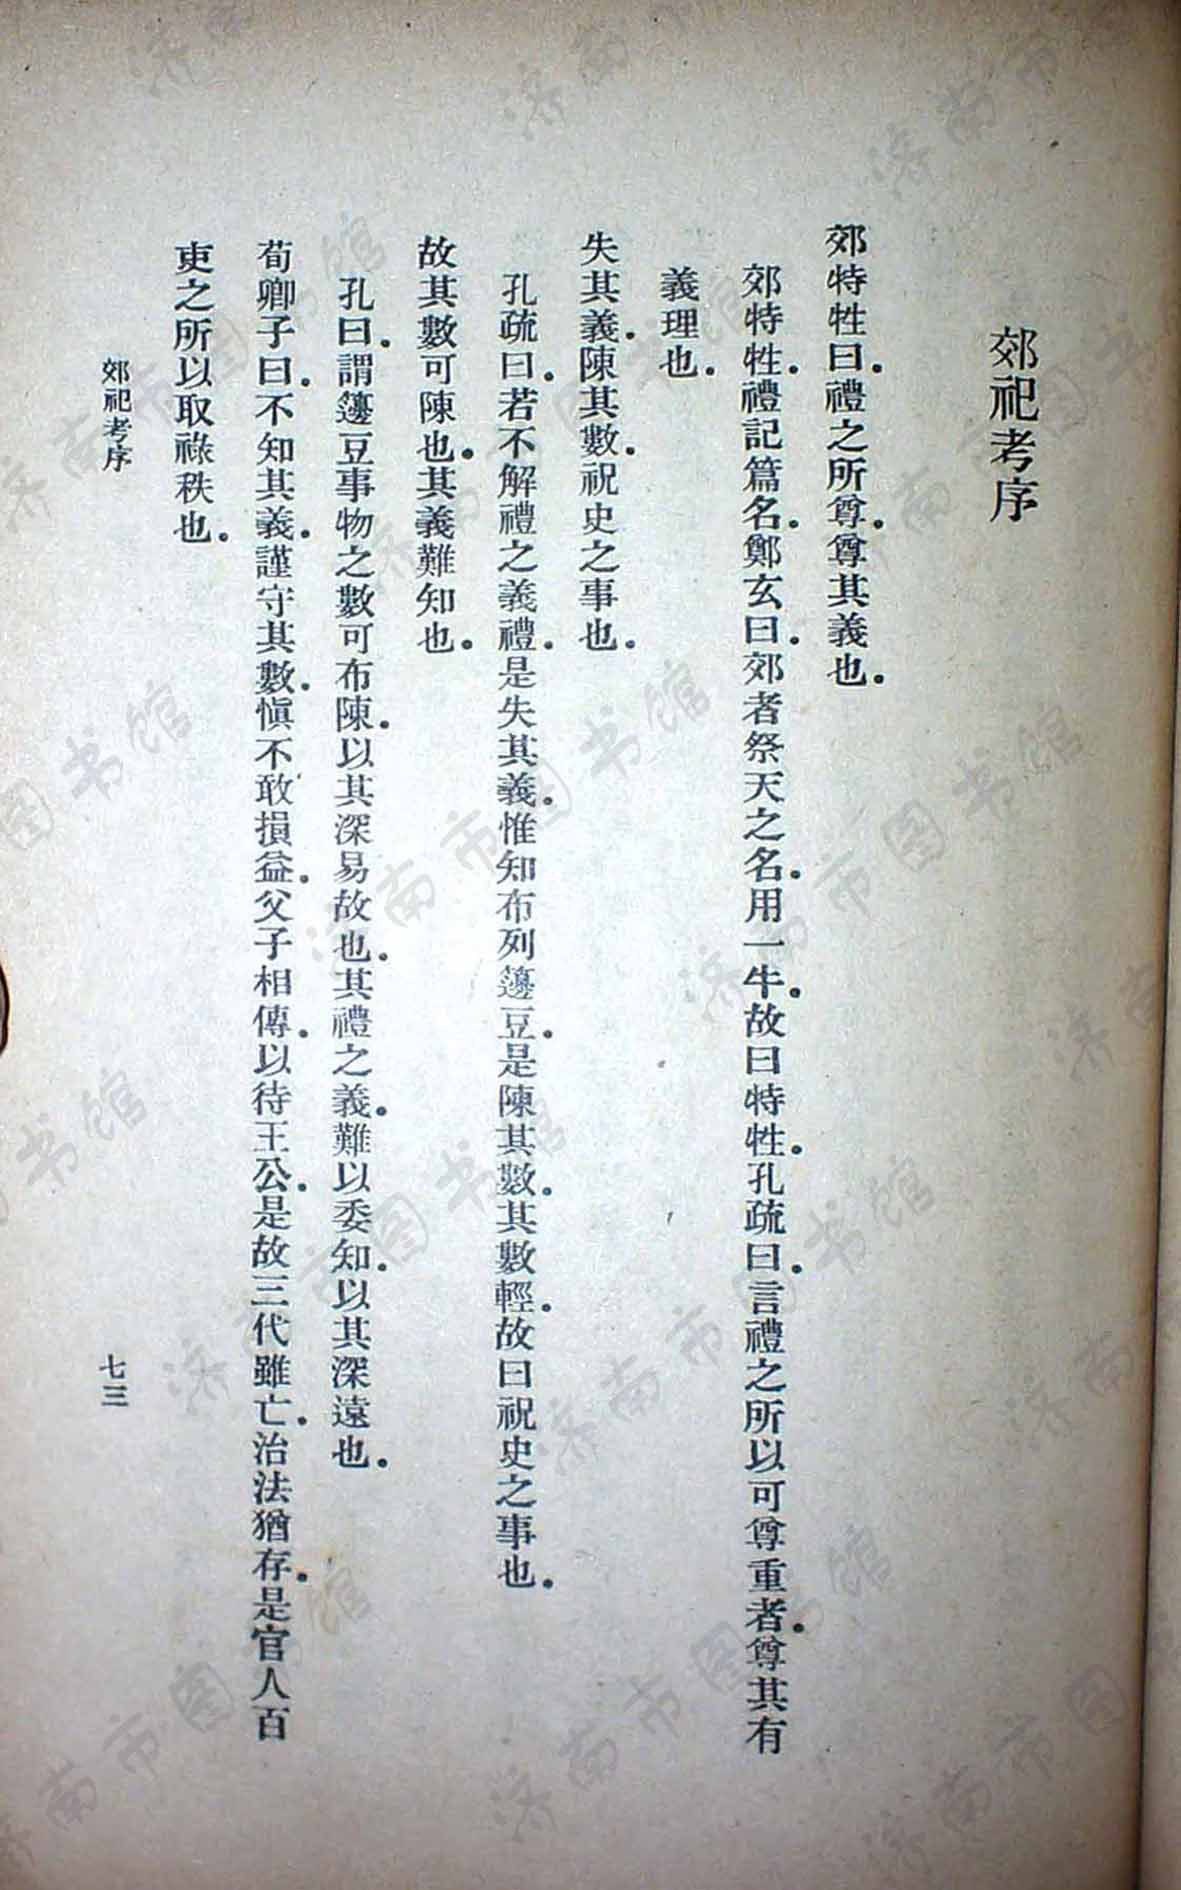 郊祀考序
郊特牲曰.禮之所尊.尊其義也.
郊特牲.禮記篇名.鄭玄曰.郊者祭天之名.用一牛.故曰特牲.孔疏曰.言禮之所以可尊重者.尊其有
義理也.
失其義.陳其數.祝史之事也.
孔疏曰.若不解禮之義禮.是失其義.惟知布列籩豆.是陳其數.其數輕.故曰祝史之事也.
故其數可陳也.其義難知也.
孔曰.謂籩豆事物之數可布陳.以其深易故也.其禮之義.難以委知.以其深遠也.
荀卿子曰.不知其義.謹守其數.愼不敢損益.父子相傳.以待王公.是故三代雖亡.治法猶存.是官人百
吏之所以取祿秩也.
郊祀考序
七三
济南市图书馆